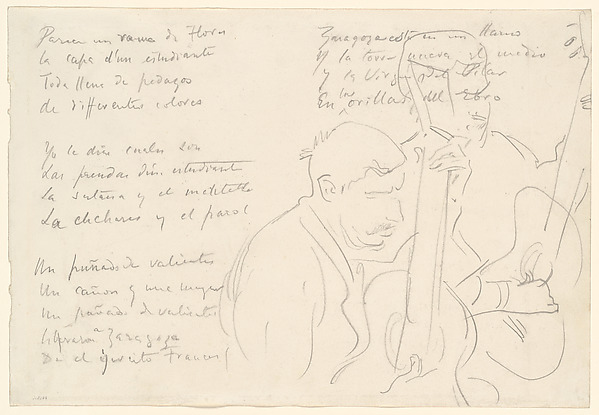 Parece un ramo de flores
la capa d'un estudiante
Toda llena de pedazos
de differentes colores
Yo le dire cuales son
Las prendas d'un estudiante
La sotana y el
La chchara y el parol
Un puñado de valientes
Un cañon y una mujer
Un puñado de valientes
Zaragoza
Da el ejercito Frances
Zaragoza esta en un llano
Y la torre nueva al medio
y la Virgen del Pilar
En las orillas del Ebro